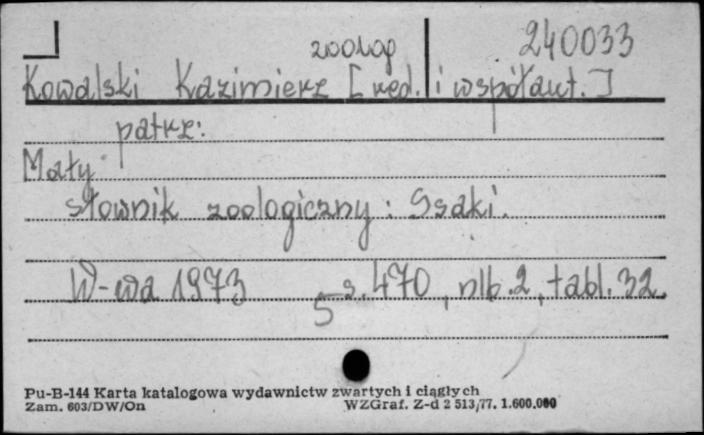 zoolog 240033
Kowalski Kazimierz [red. i współaut.]
patrz:
Mały
słownik zoologiczny: Ssaki.
W-wa 1973 s. 470, nlb. 2, tabl. 32.
5
Pu-B-144 Karta katalogowa wydawnictw zwartych i ciągłych
Zam. 603/DW/On WZGraf. Z-d 2 513/77. 1.600.000